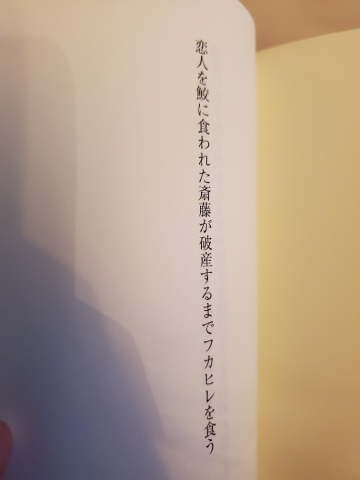 恋人を鮫に食われた斎藤が破産するまでフカヒレを食う